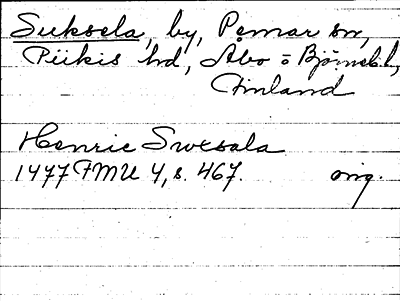 Suksela, by, Pemar sn,
Piikis hd, Åbo o Björneb. l,
Finland
Henric Swesala
1477 FMU 4, s. 467. orig.